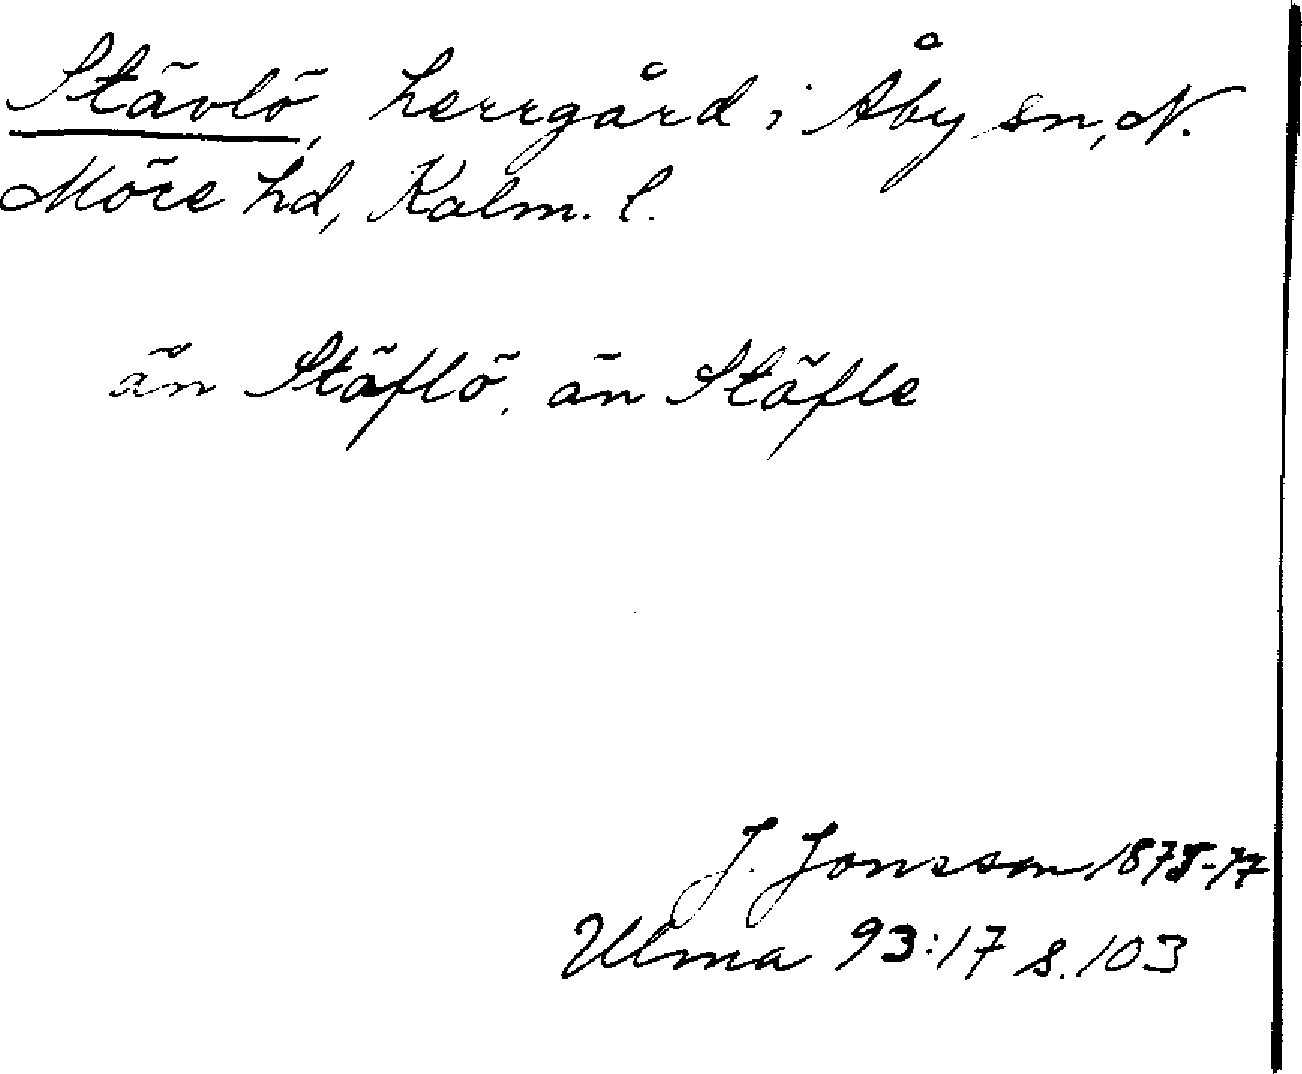 Stävlö, herrgård i Åby sn, N.
Möre hd, Kalm. l.
än Stäflö, än Stäfle
J. Jonsson 1875-77
Ulma 93:17 s. 103